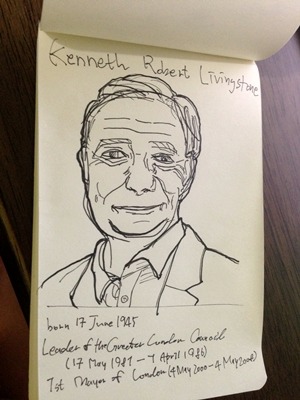 Kenneth Robert Livingstone
born 17 June 1945
Leader of the Greater London Council
(17 May 1981 – 1 April 1986)
1st Mayor of London (4 May 2000 – 4 May 2008)